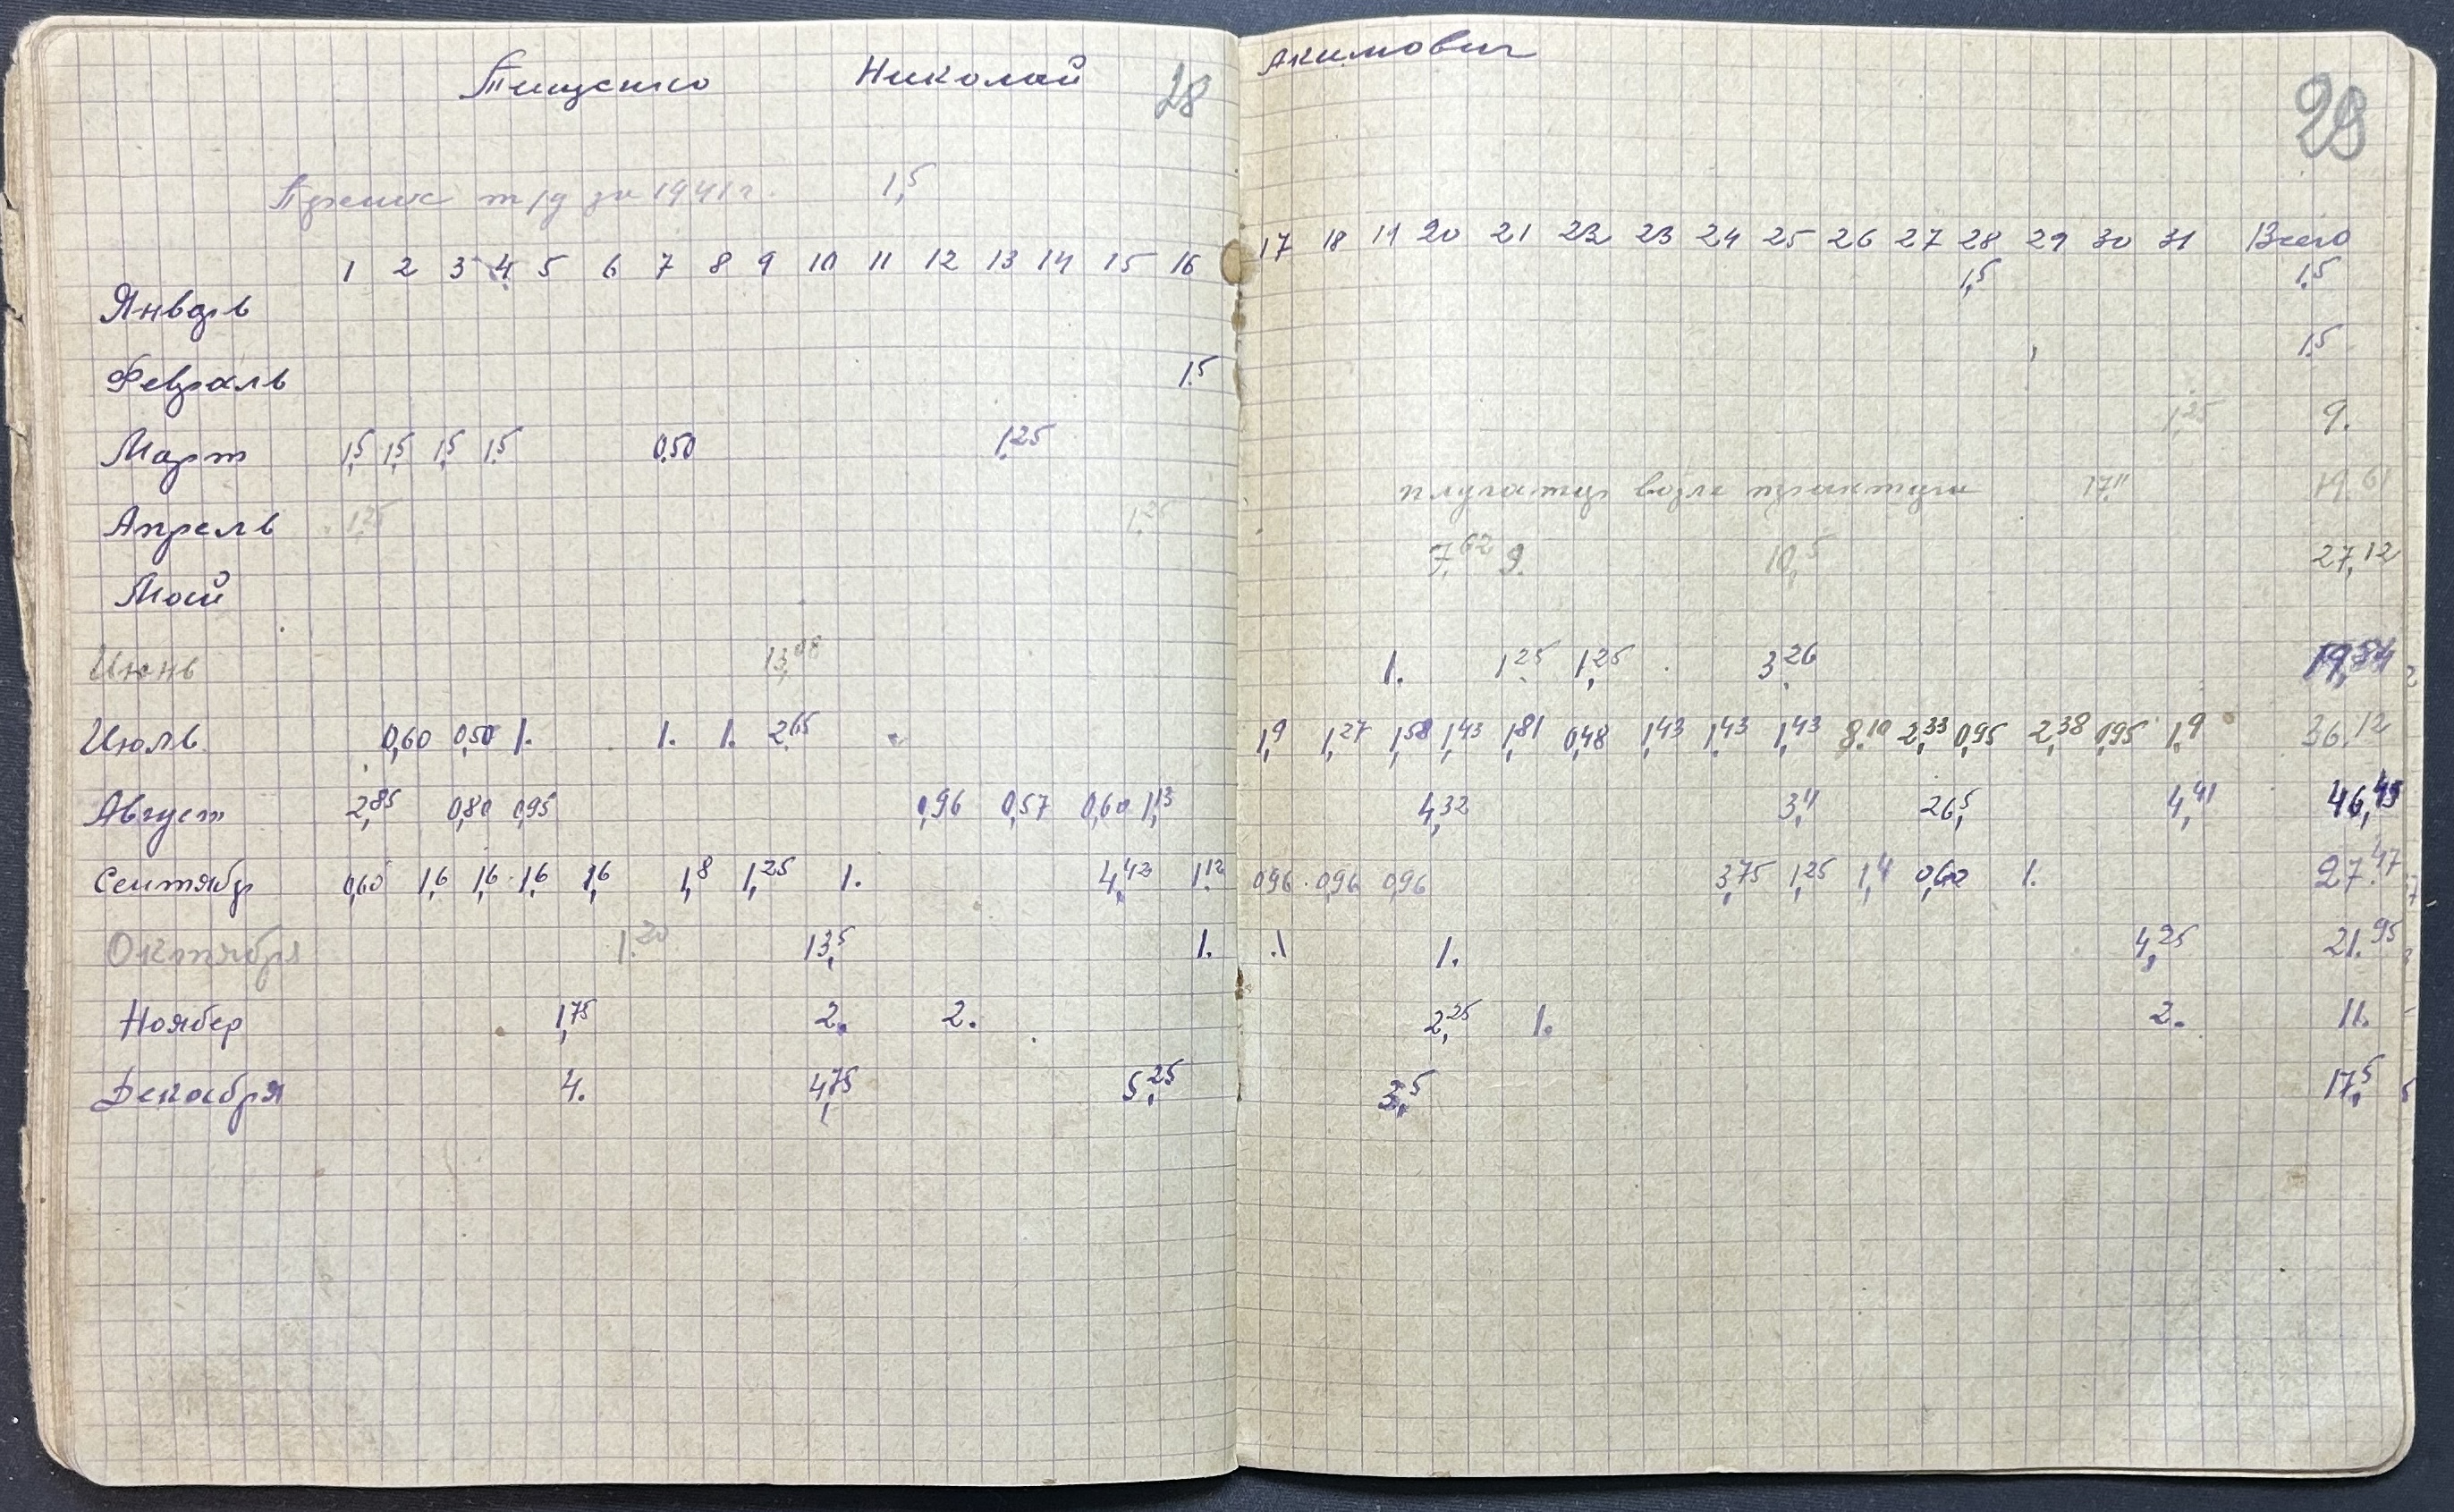 Тищенко Николай 28 Акимович 29
т/д за 1941 г. 1,5
1 2 3 4 5 6 7 8 9 10 11 12 13 14 15 16 17 18 19 20 21 22 23 24 25 26 27 28 29 30 31 Всего
Январь 1,5 1,5
Февраль 1,5 1,5
Март 1,5 1,5 1,5 1,5 0,50 1,25 1,25 9.
Апрель 1,25 1,25 возле 17,11 19,61
Май 7,62 9. 10,5 27,12
Июнь 13,08 1. 1,25 1,25 3,26 19,84
Июль 0,60 0,50 1. 1. 1. 2,65 1,9 1,27 1,58 1,43 1,81 0,48 1,43 1,43 1,43 8,10 2,33 0,95 2,38 0,95 1,9 36,12
Август 2,85 0,80 0,95 0,96 0,57 0,60 1,13 4,32 3,4 26,5 4,41 46,45
Сентябр 0,60 1,6 1,6 1,6 1,6 1,8 1,25 1. 4,42 1,12 0,96 0,96 0,96 3,75 1,25 1,4 0,60 1. 27,47
Октября 1,20 13,5 1. 1 1. 4,25 21,95
Ноябер 1,75 2. 2. 2,25 1. 2. 11.
Декабря 4. 4,75 5,25 3,5 17,5